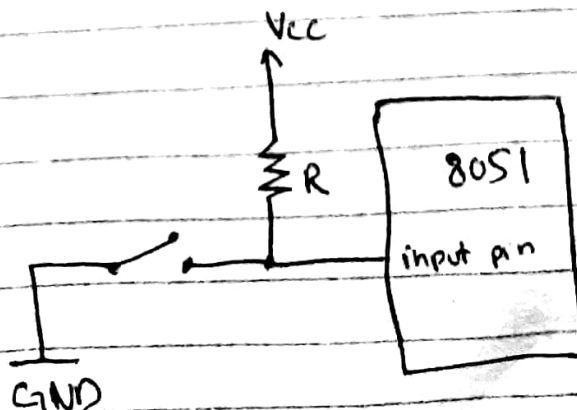 Vcc
R
8051
input pin
GND